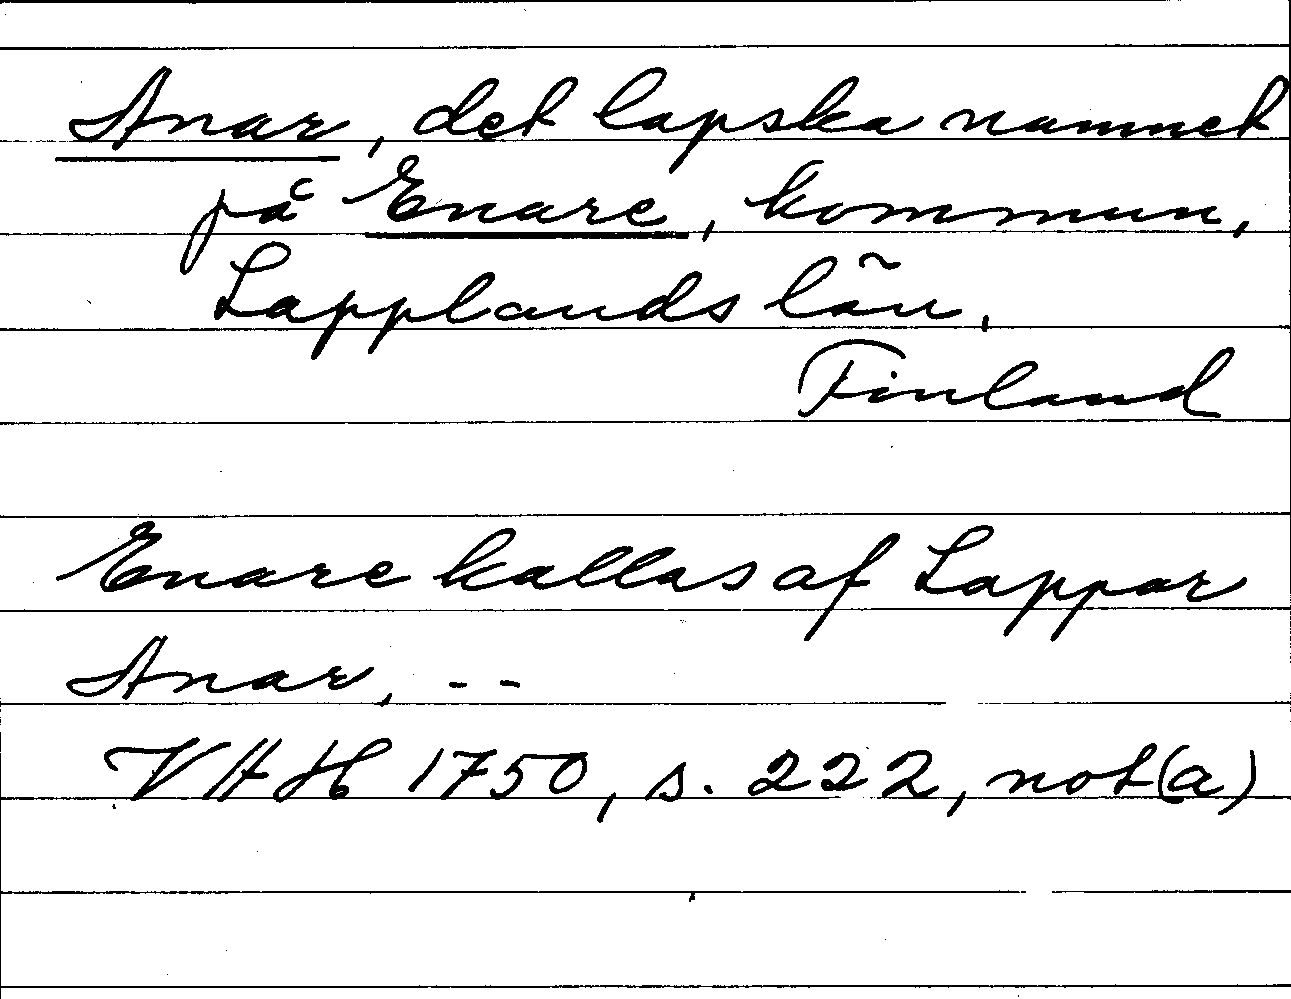 Anar, det lapska namnet
på Enare, kommun,
Lapplands län,
Finland
Enare kallas af Lappar
Anar, --
VAH 1750, s. 222, not(a)